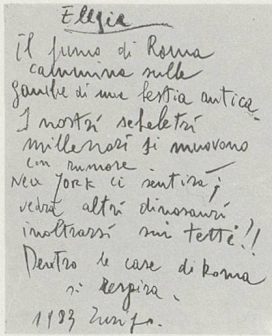 Elegia
il fumo di Roma
cammina sulle
gambe di una bestia antica.
I nostri scheletri
millenari si muovono
con rumore.
New York ci sentirà;
vedrà altri dinosauri
inoltrarsi sui tetti!!
Dentro le case di Roma
si respira.
1983